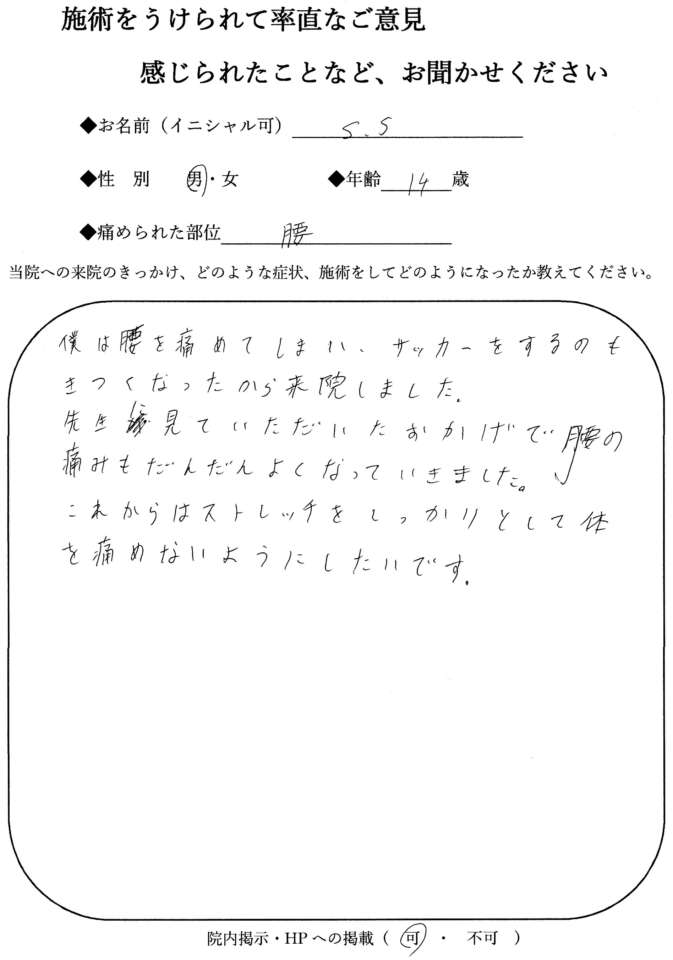 施術をうけられて率直なご意見
感じられたことなど、お聞かせください
◆お名前（イニシャル可） S.S
◆性 別 男・女 ◆年齢 14 歳
◆痛められた部位 腰
当院への来院のきっかけ、どのような症状、施術をしてどのようになったか教えてください。
僕は腰を痛めてしまい、サッカーをするのも
きつくなったから来院しました。
先生に見ていただいたおかげで腰の
痛みもだんだんよくなっていきました。
これからはストレッチをしっかりとして体
を痛めないようにしたいです。
院内掲示・HPへの掲載（ 可 ・ 不可 ）